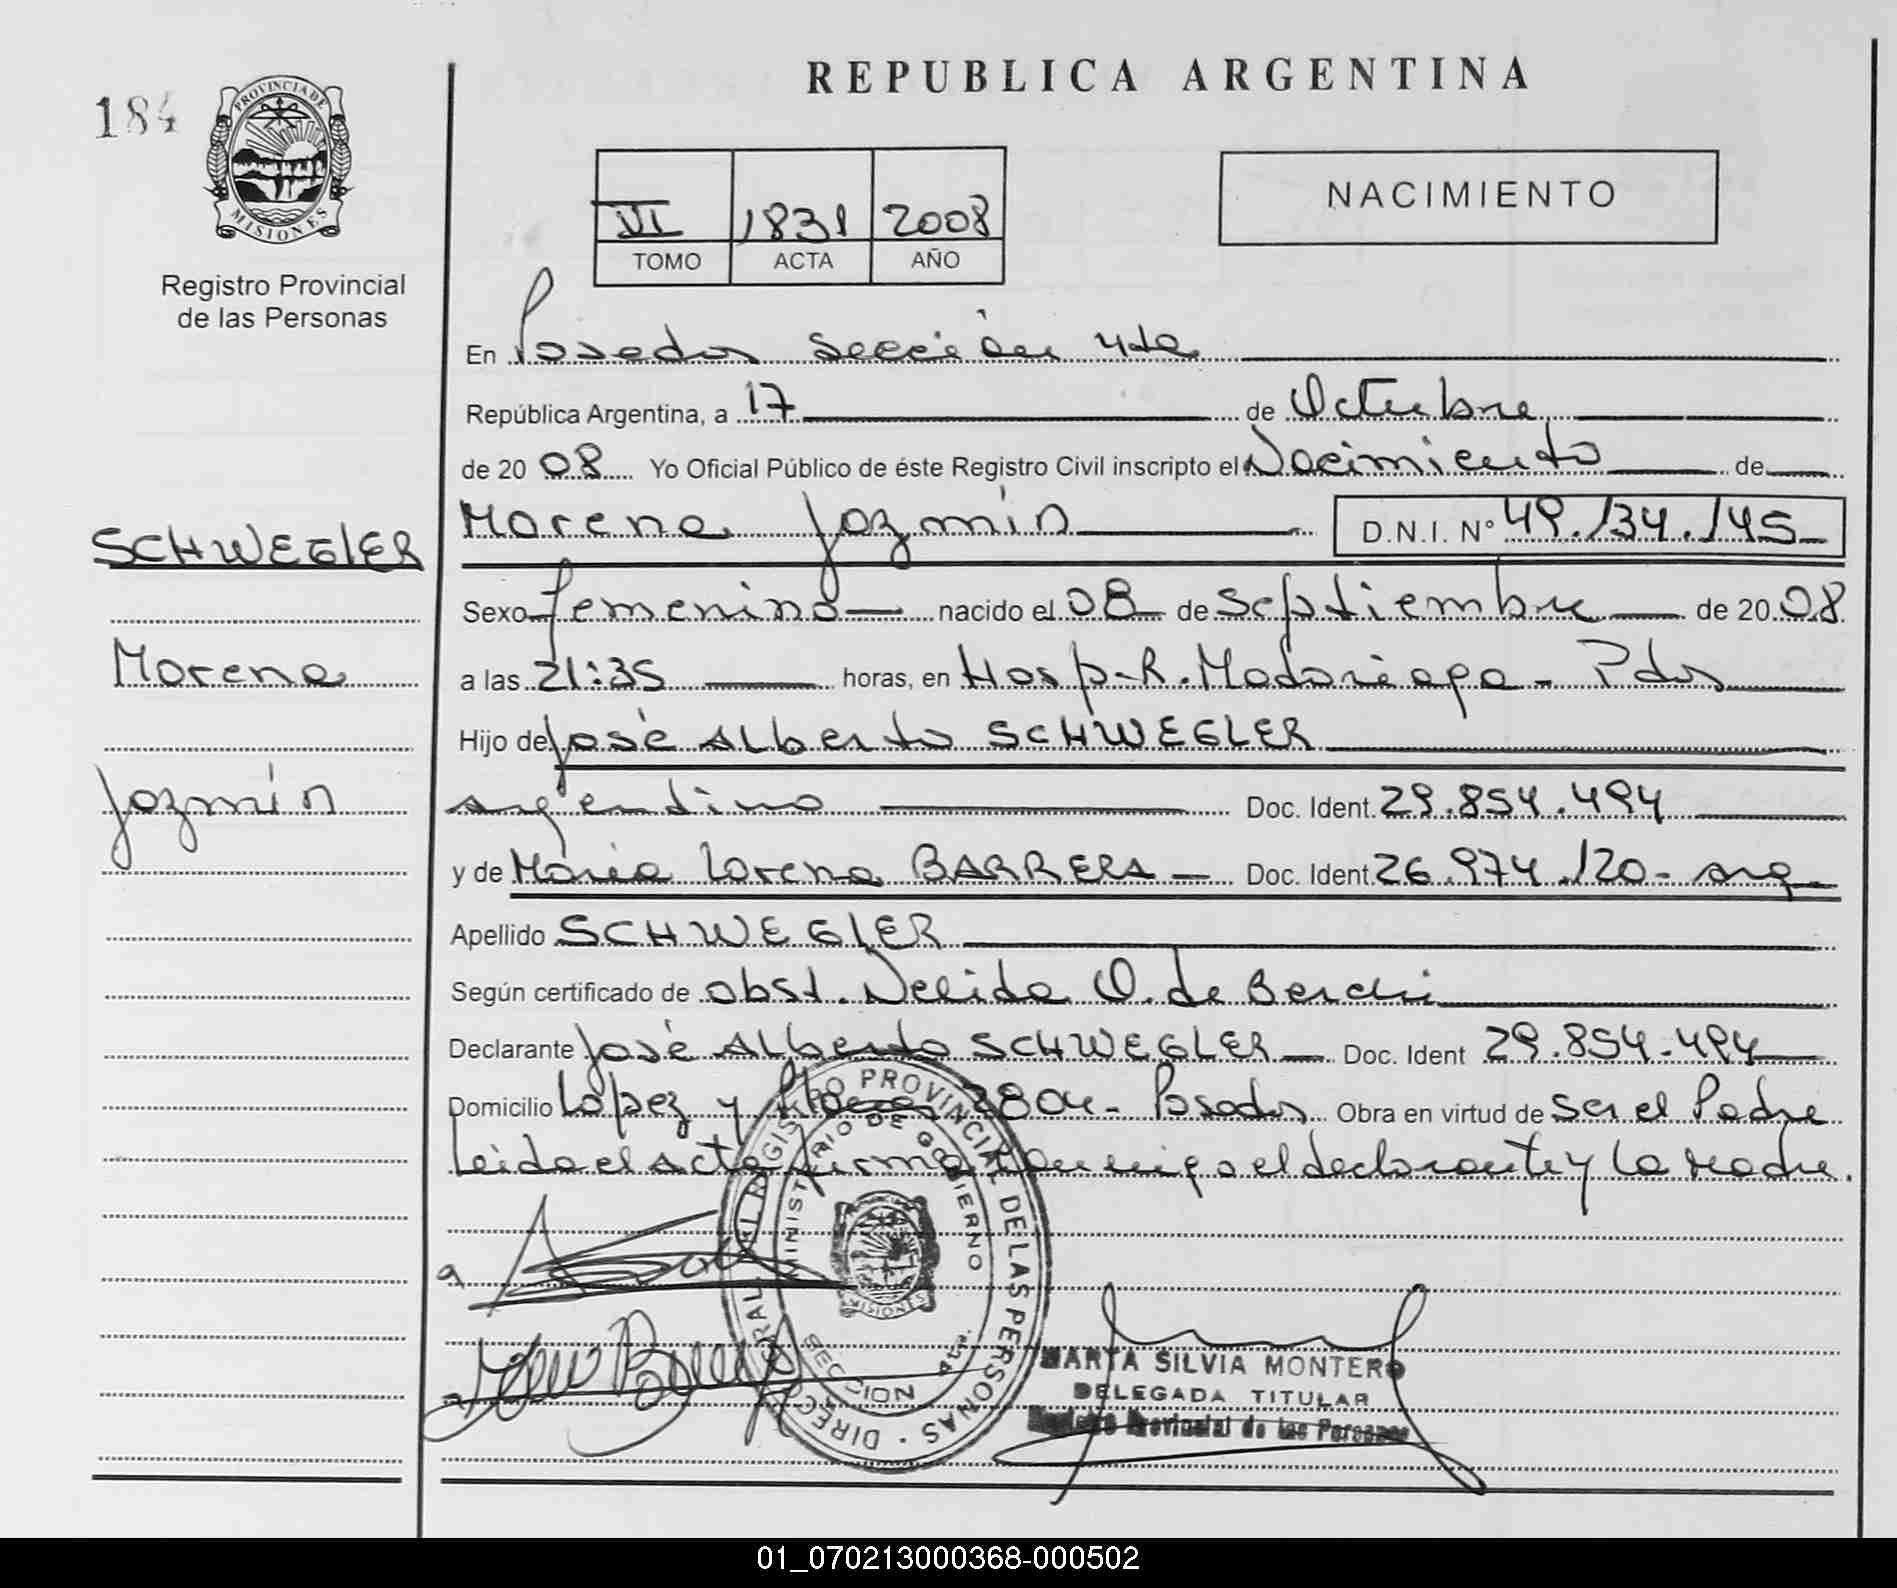 REPUBLICA ARGENTINA
184
PROVINCIA DE
MISIONES
Registro Provincial
de las Personas
VI 1831 2008
TOMO ACTA AÑO
NACIMIENTO
En Posadas Sección 4ta
República Argentina, a 17 de Octubre
de 20 08 Yo Oficial Público de éste Registro Civil inscripto el Nacimiento de
Morena Jazmín D.N.I. Nº 49.134.145
SCHWEGLER
Morena
Jazmín
Sexo femenino nacido el 08 de Septiembre de 20 08
a las 21:35 horas, en Hosp. R. Madariaga - Pdas
Hijo de José Alberto SCHWEGLER
argentino Doc. Ident. 29.854.494
y de María Lorena BARRERA Doc. Ident. 26.974.120 - arg
Apellido SCHWEGLER
Según certificado de obst. Nélida O. de
Declarante José Alberto SCHWEGLER Doc. Ident 29.854.494
Domicilio López y 2804 - Posadas Obra en virtud de ser el Padre
Leída el acta firma conmigo el declarante y la madre.
REGISTRO PROVINCIAL DE LAS PERSONAS
MINISTERIO DE GOBIERNO
MISIONES
SECCION 4ta.
MARTA SILVIA MONTERO
DELEGADA TITULAR
Registro Provincial de las Personas
01_070213000368-000502